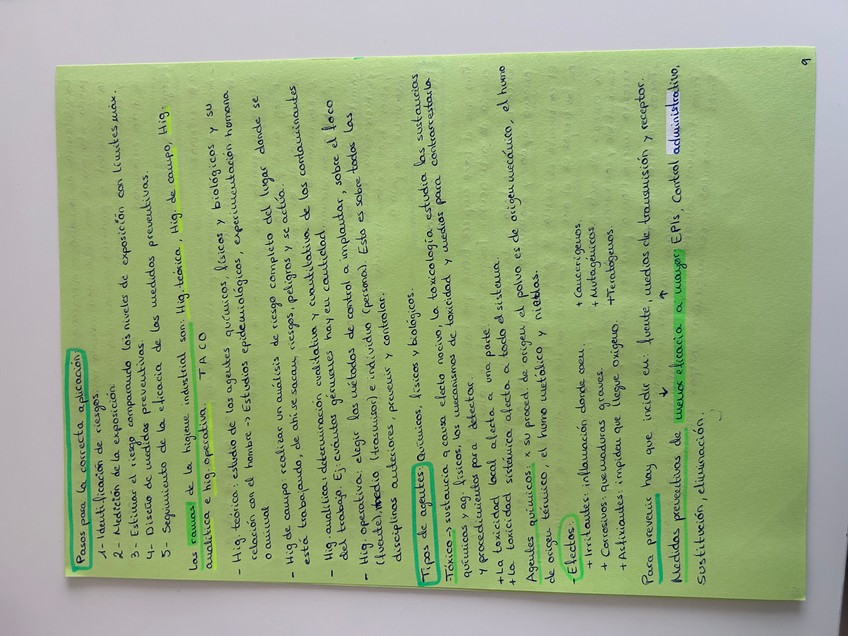 Pasos para la correcta aplicación:
1- Identificación de riesgos.
2- Medición de la exposición.
3- Estimar el riesgo comparando los niveles de exposición con límites máx.
4- Diseño de medidas preventivas.
5- Seguimiento de la eficacia de las medidas preventivas.
Las ramas de la higiene industrial son: Hig. teórica, Hig. de campo, Hig.
analítica e hig. operativa. TACO
- Hig. teórica: estudio de los agentes químicos, físicos y biológicos y su
relación con el hombre -> Estudios epidemiológicos, experimentación humana
o animal
- Hig de campo realizar un análisis de riesgo completo del lugar donde se
está trabajando, de ahí se sacan riesgos, peligros y se actúa.
- Hig. analítica: determinación cualitativa y cuantitativa de los contaminantes
del trabajo Ej: cuántos gérmenes hay en cantidad.
- Hig. operativa: elegir los métodos de control a implantar, sobre el foco
(fuente), medio (trasmisor) e individuo (persona). Esto es sobre todos las
disciplinas anteriores, prevenir y controlar.
Tipos de agentes: Químicos, físicos y biológicos.
Tóxico -> sustancia q causa efecto nocivo, la toxicología estudia las sustancias
químicas y ag. físicos, los mecanismos de toxicidad y medios para contrarrestarla
y procedimientos para detectar.
+ La toxicidad local afecta a una parte
+ La toxicidad sistémica afecta a todo el sistema.
Agentes químicos: x su proced de origen, el polvo es de origen mecánico, el humo
de origen térmico, el humo metálico y nieblas.
- Efectos:
+ Irritantes: inflamación donde caen. + Cancerígenos.
+ Corrosivos quemaduras graves. + Mutagénicos
+ Asfixiantes: impiden que llegue oxígeno. + Teratógenos.
Para prevenir hay que incidir en: fuente, medios de transmisión y receptor.
Medidas preventivas de menor eficacia a mayor; EPIs, Control administrativo,
Sustitución, eliminación.
9